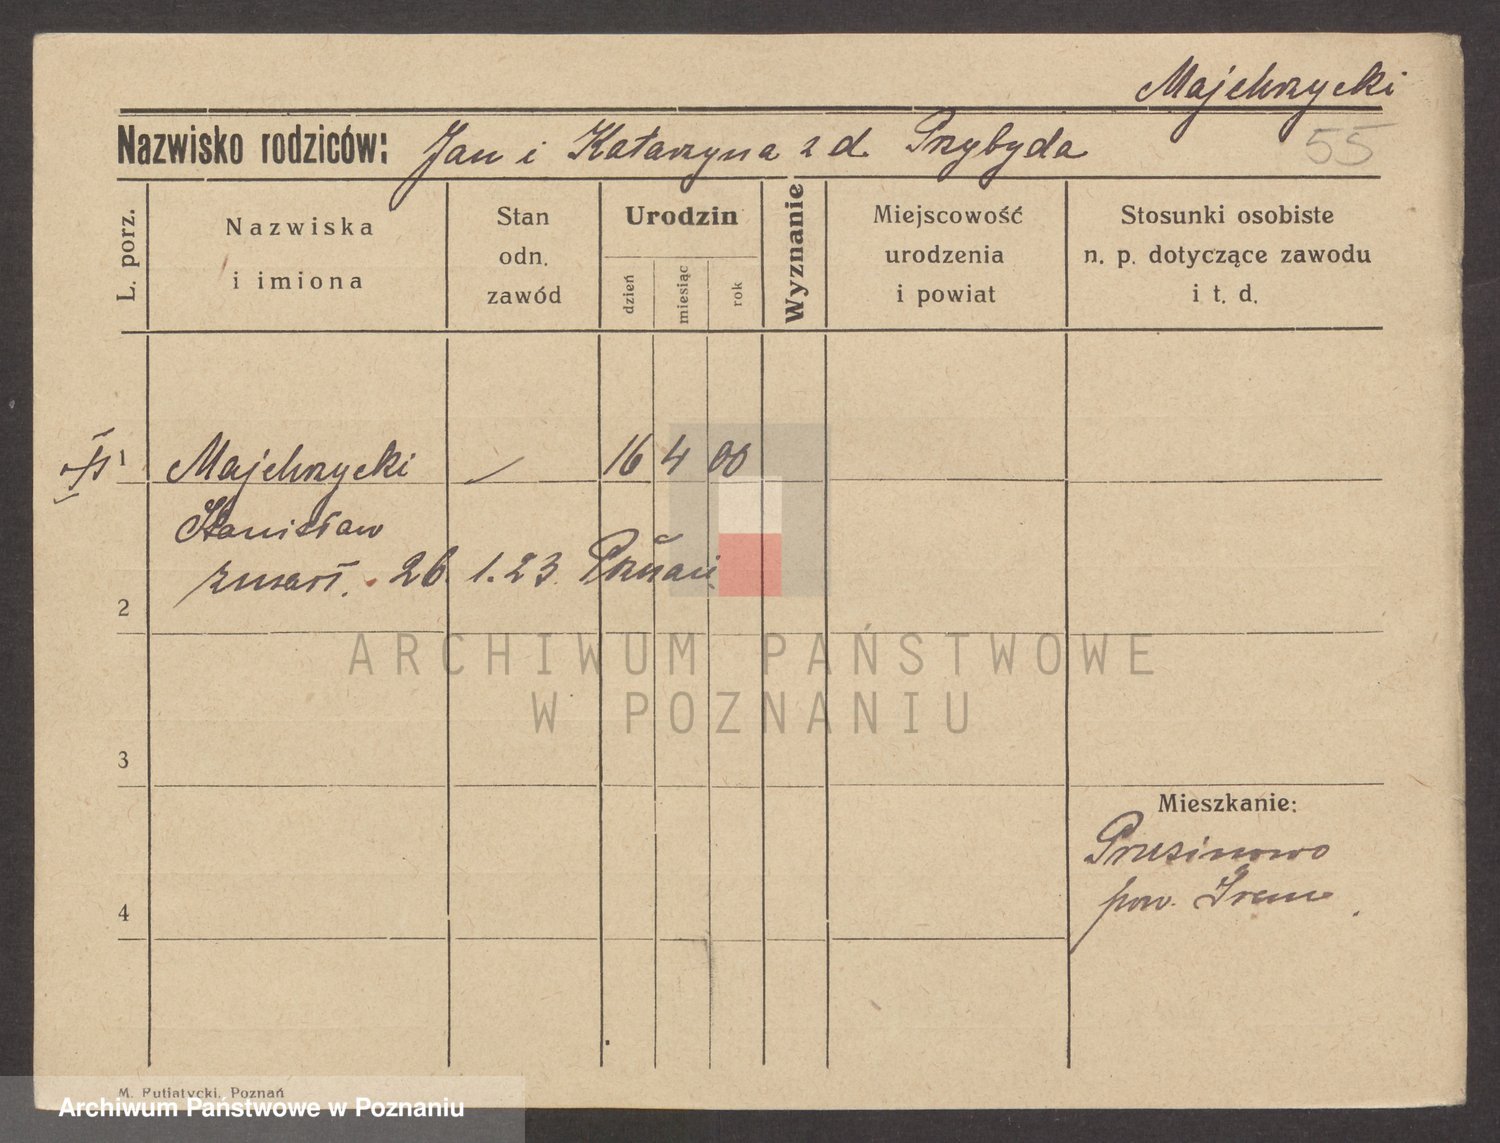 Majchrzycki
Nazwisko rodziców: Jan i Katarzyna z d. Przybyda
55
L. porz.
Nazwiska
i imiona
Stan
odn.
zawód
Urodzin
dzień
miesiąc
rok
Wyznanie
Miejscowość
urodzenia
i powiat
Stosunki osobiste
n. p. dotyczące zawodu
i t. d.
1 Majchrzycki 16 4 00
Stanisław
zmarł. 26. 1. 23. Poznań
2
ARCHIWUM PAŃSTWOWE
W POZNANIU
3
Mieszkanie:
Prusinowo
pow. Śrem
4
M. Putiatycki, Poznań
Archiwum Państwowe w Poznaniu